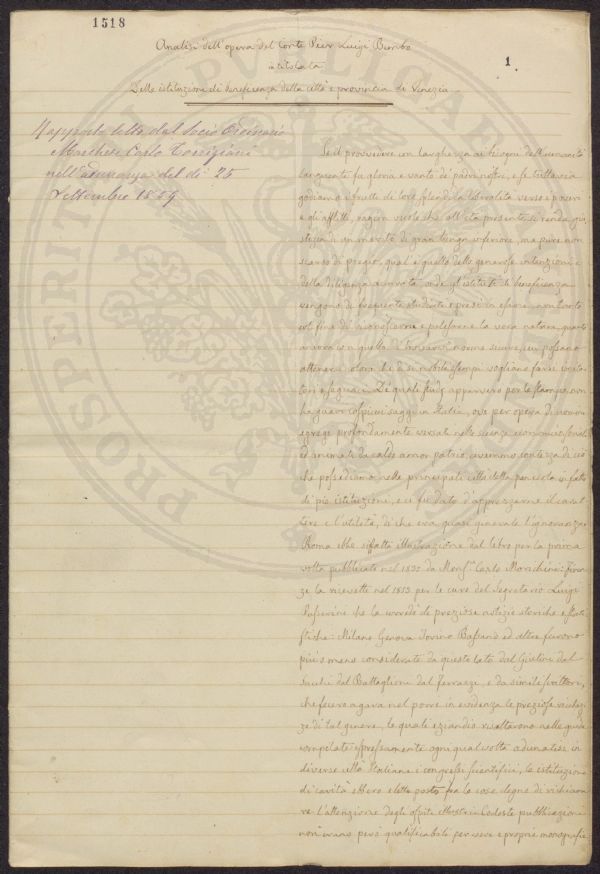 1518
1.
Analisi dell'opera del Conte Pier Luigi Bembo
intitolata
Delle istituzioni di beneficenza della città e provincia di Venezia
Rapporto letto dal Socio Ordinario
Marchese Carlo Torrigiani
nell'adunanza del dì 25
Settembre 1859
Se il provvedere con larghezza ai bisogni dell'umanità
languente fu gloria e vanto de' padri nostri, e se tuttavia
godiamo i frutti di loro splendida liberalità verso i poveri
e gli afflitti, ragion vuole che all'età presente si renda giu
stizia di un merito di gran lunga inferiore, ma pure non
scarso di pregio, qual'è quello delle generose intenzioni e
della diligenza onde gl'istituti di beneficenza
vengono di frequente studiati e presi in esame, non tanto
col fine di riconoscerne e palesarne la vera natura, quanto
ancora con quello di norme sicure, cui possano
attenersi coloro che di sì nobili esempi vogliano farsi imita
tori e seguaci. De' quali studj apparvero per le stampe, non
ha guari cospicui saggi in Italia, ove per opera di uomini
egregi profondamente versati nelle scienze economiche e sociali
ed animati da caldo amor patrio, avemmo contezza di ciò
che possediamo nelle principali città della penisola in fatto
di pie istituzioni, e ci fu dato d'apprezzarne il carat
tere e l'utilità, di che era quasi generale l'ignoranza.
Roma ebbe siffatta illustrazione dal libro per la prima
volta pubblicato nel 1835 da Monsr. Carlo Morichini: Firen
ze la ricevette nel 1853 per le cure del Segretario Luigi
Passerini che la corredò di preziose notizie storiche e stati
stiche: Milano Genova Torino Bassano ed altre furono
più o meno considerate da questo lato dal Giulini dal
Sacchi dal Battaglioni dal Ferrazzi, e da simili scrittori,
che fecero a gara nel porre in evidenza le preziose ricchez
ze di tal genere, le quali eziandio risaltarono nelle guide
compilate espressamente ogni qual volta adunatisi in
diverse città Italiane i congressi scientifici, le istituzioni
di carità ebbero eletto posto fra le cose degne di richiama
re l'attenzione degli ospiti illustri. Codeste pubblicazioni
non erano però qualificabili per vere e proprie monografie